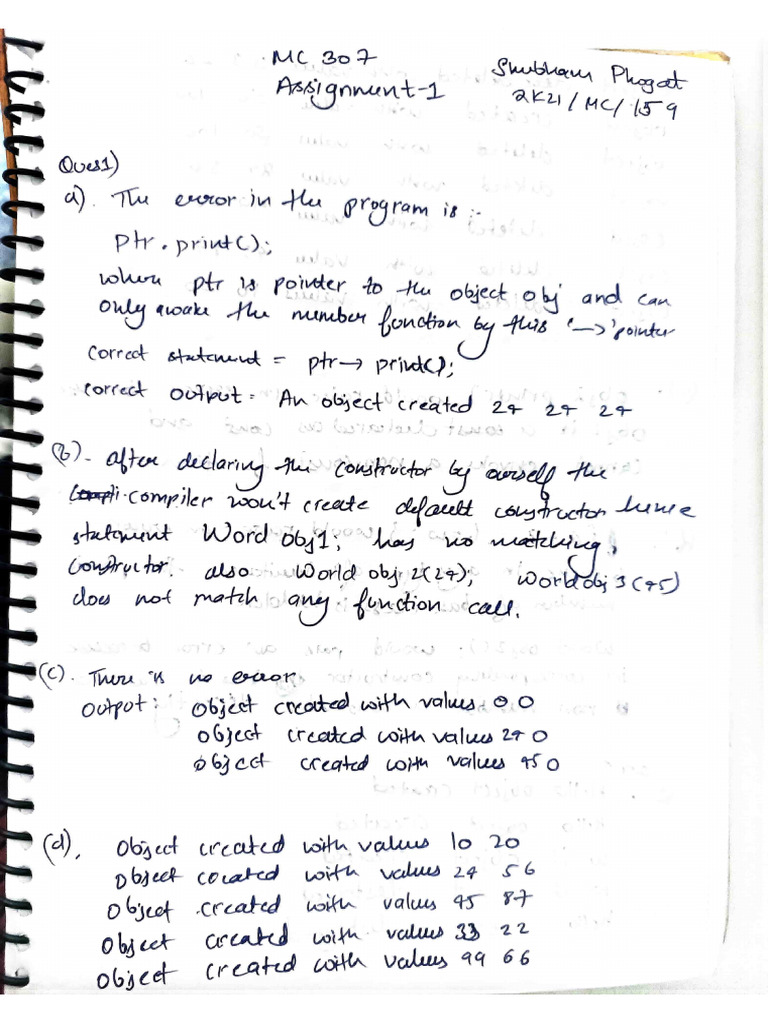 MC 307
Assignment-1
Shubham Phogat
2K21/MC/159
Ques1)
a). The error in the program is :-
Ptr.print();
where ptr is pointer to the object obj and can
only awake the member function by this '→' pointer
correct statement = ptr → print();
correct output = An object created 24 24 24
(b). after declaring the constructor by ourself the
compiler won't create default constructor hence
statement Word obj1; has no matching
constructor. also World obj2(24); World obj3(45)
does not match any function call.
(c). There is no error
output: Object created with values 0 0
Object created with values 24 0
Object created with values 45 0
(d). Object created with values 10 20
Object created with values 24 56
Object created with values 45 87
Object created with values 33 22
Object created with values 99 66